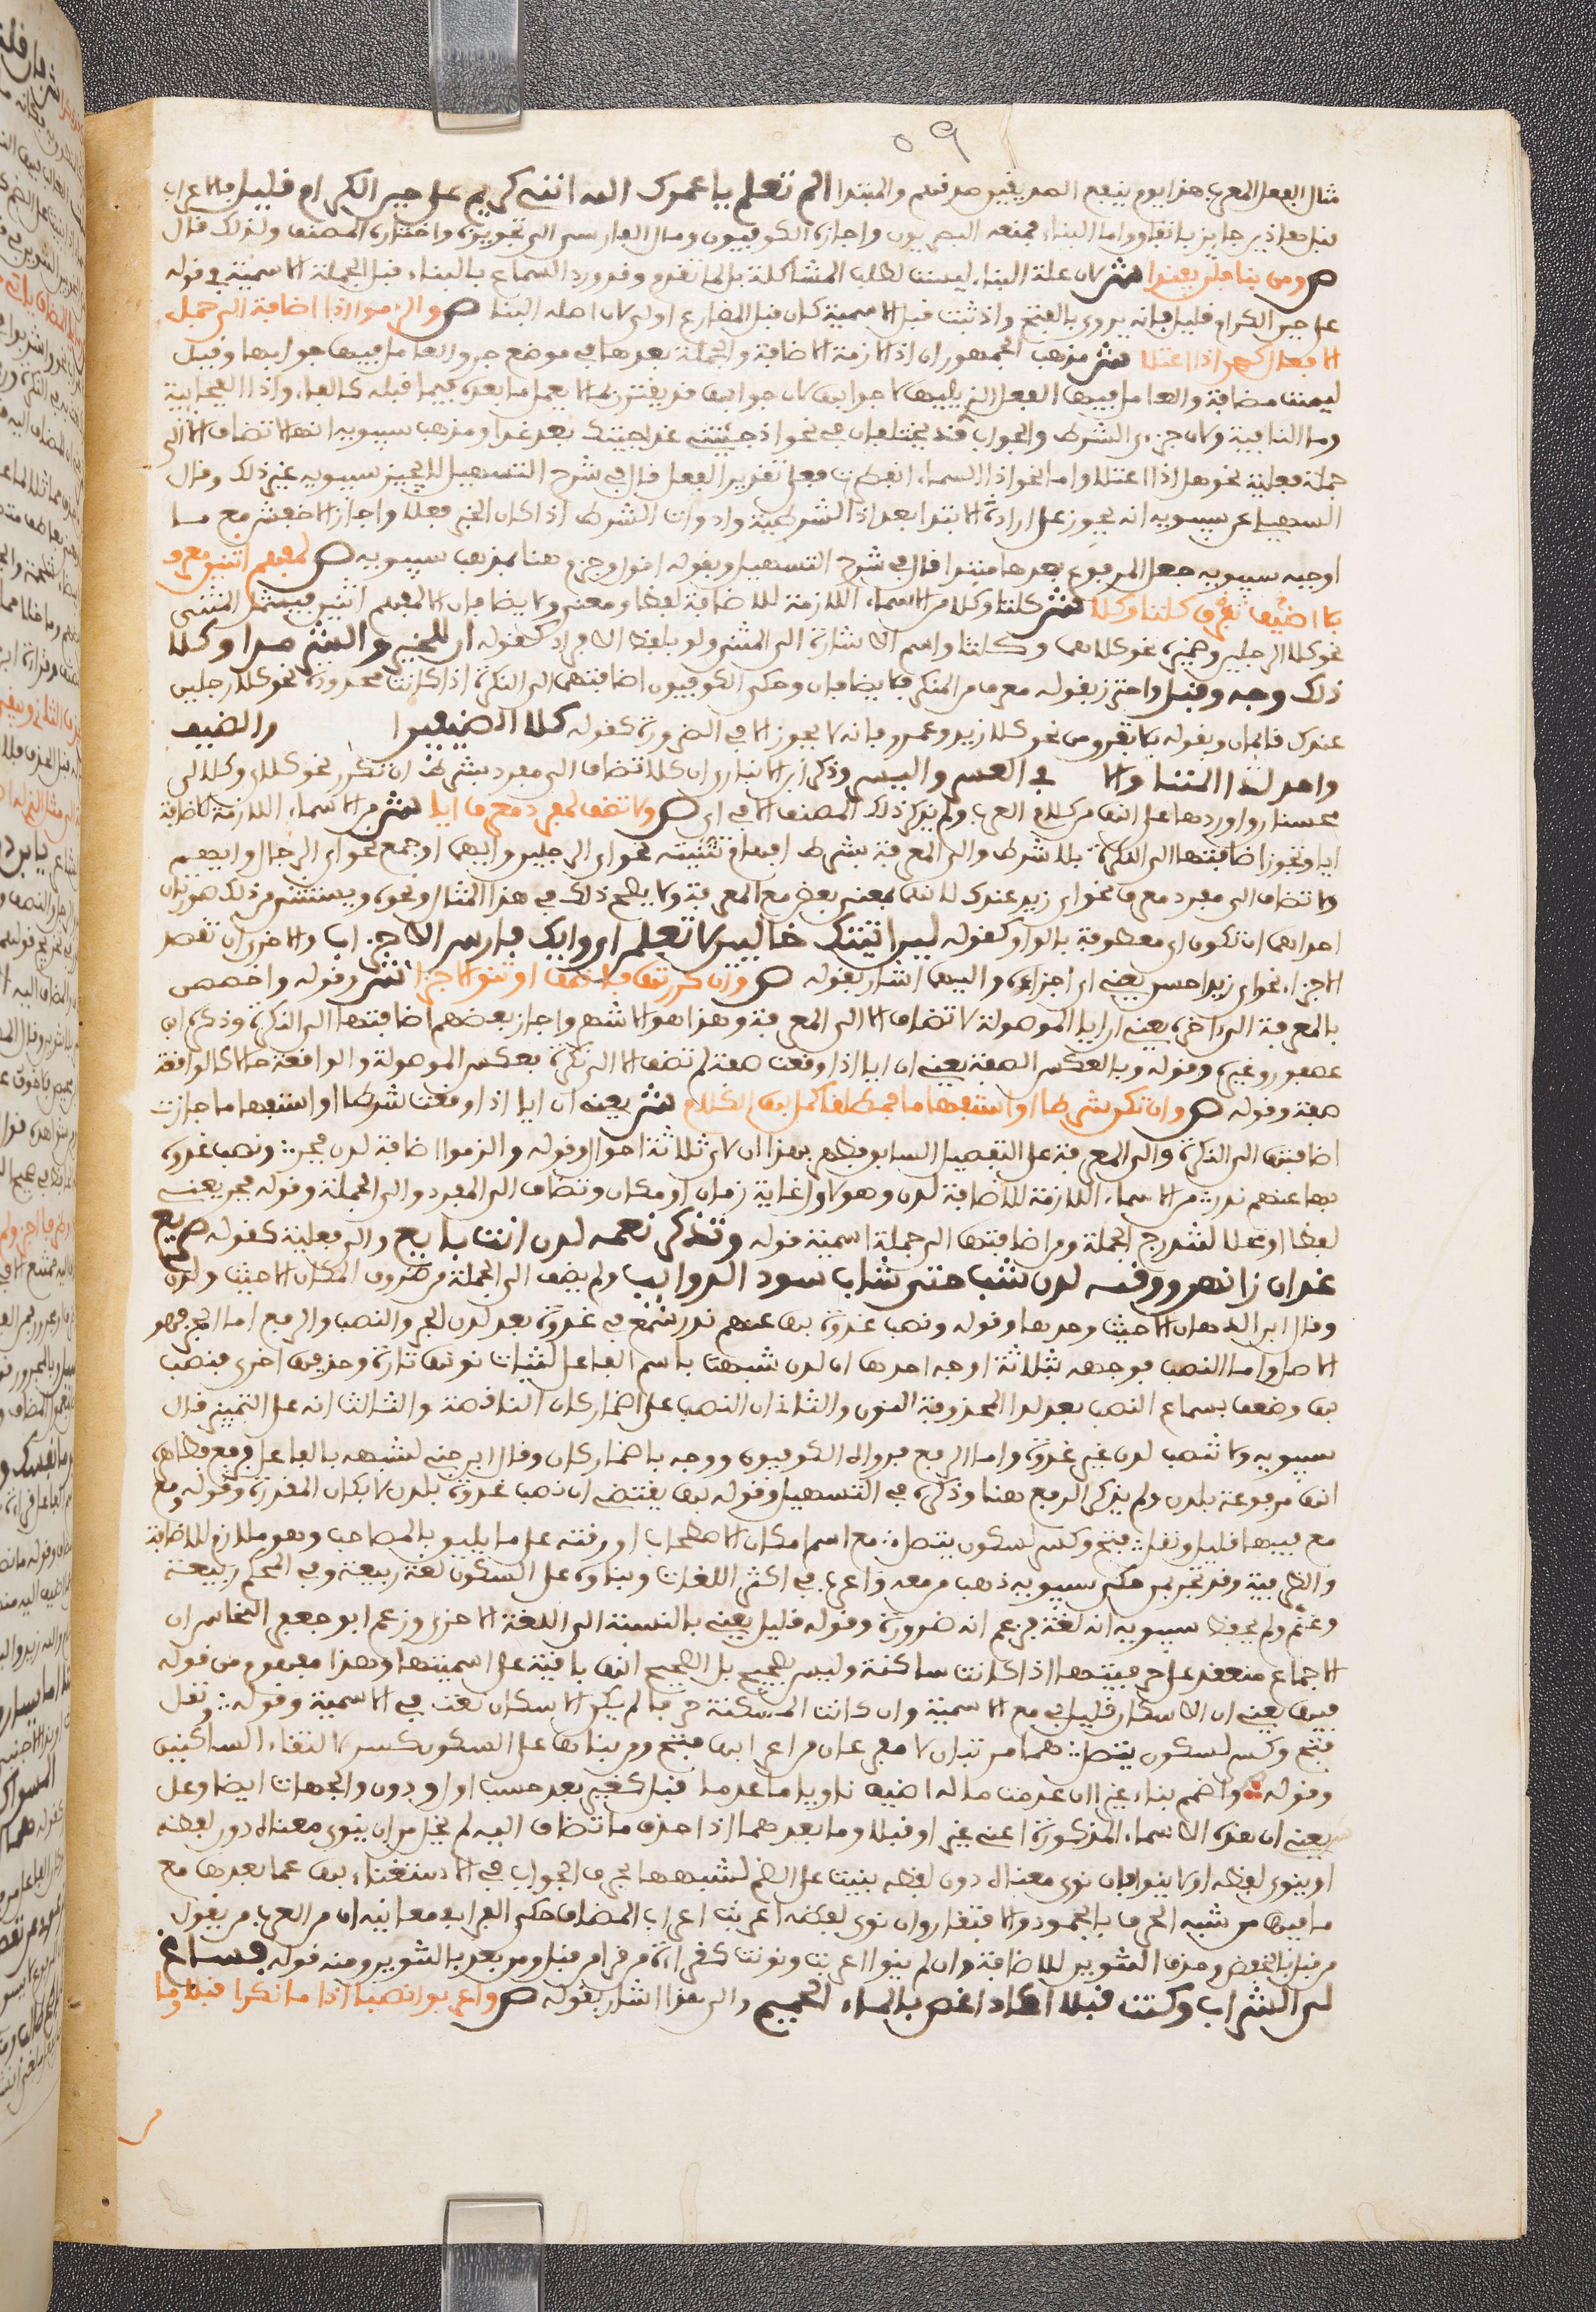 ٥٩
مثال الفعل المعرب هذا يوم ينفع الصادقين صدقهم والمبتدا الم تعلم يا عمرك الله انني كريم على حين الكرام قليل فالاعراب
فيما هذا جايز باتفاق واما البناء فمنعه البصريون واجازه الكوفيون ومال الفارسي الى تجويزه واختاره المصنف ولذلك قال
ص ومن بنا فلن يفندا ش لان علة البناء ليست لطلب المشاكلة بل لما تقدم وقد ورد السماع بالبناء قبل الجملة الاسمية في قوله
على حين الكرام قليل فانه يروى بالفتح واذ ثبت قبل الاسمية كان قبل المضارع اولى لان اصله البنا ص والزموا اذا اضافة الى جمل
الافعال كهن اذا اعتلا ش مذهب الجمهور ان اذا لازمة الاضافة والجملة بعدها في موضع جر والعامل فيها جوابها وقيل
ليست مضافة والعامل فيها الفعل الذي يليها لا جوابها لان جوابها قد يقترن بما لا يعمل ما بعده فيما قبله كالفاء واذا الفجائية
وما النافية ولان جزءي الشرط والجواب قد يختلفان في نحو اذا جئتني غدا جيتك بعد غد ومذهب سيبويه انها لا تضاف الا الى
جملة فعلية نحوها اذا اعتلا واما نحو اذا السماء انفطرت فعلى تقدير الفعل قال في شرح التسهيل لا يجيز سيبويه غير ذلك وقال
السهيلي عن سيبويه انه يجوز على ارادة الابتدا بعد اذا الشرطية وادوات الشرط اذا كان الخبر فعلا واجاز الاخفش مع ما
اوجبه سيبويه جعل المرفوع بعدها مبتدا قال في شرح التسهيل وبقوله اقول وجزم هنا بمذهب سيبويه ص لمفهم اثنين معرف
بلا اضيف تفرق كلتا وكلا ش كلتا وكلا من الاسماء اللازمة للاضافة لفظا ومعنى ولا يضافان الا لمفهم اثنين فيشمل المثنى
نحو كلا الرجلين وضميره نحو كلاهما وكلتا واسم الاشارة الى المثنى ولو بلفظ الافراد كقوله ان للخير والشر مدا وكلا
ذلك وجه وقبل واحترز بقوله معرف من المنكر فلا يضافان وحكى الكوفيون اضافتهما الى النكرة اذا كانت محدودة نحو كلا رجلين
عندك قائمان وبقوله بلا تفرق من نحو كلا زيد وعمرو فانه لا يجوز الا في الضرورة كقوله كلا الضيفين والضيف
واجد لدا المنا والا في العسر واليسر وذكر ابن الانباري ان كلا تضاف الى مفرد بشرط ان تكرر نحو كلاي وكلا لي
محسنان واوردها على انها من كلام العرب ولم يذكر ذلك المصنف الا في اي ص ولا تضف لمفرد معرف ايا ش من الاسماء اللازمة للاضافة
ايا وتجوز اضافتها الى النكرة بلا شرط والى المعرفة بشرط افهام تثنيته نحو اي الرجلين وايهما او جمع نحو اي الرجال وايهم
ولا تضاف الى مفرد معرف نحو اي زيد عندك لانها بمعنى بعض مع المعرفة ولا يصلح ذلك في هذا المثال ونحوه ويستثنى من ذلك صورتان
احداهما ان تكون اي معطوفة بالواو كقوله لين اتيتك خاليين لتعلمن اي وايك فارس الاحزاب والاخرى ان تقصد
الاجزاء نحو اي زيد احسن يعني اي اجزائه واليهما اشار بقوله ص وان كررتها فاضف او تنو الاجزا ش وقوله واخصص
بالمعرفة الى اخره يعني ان ايا الموصولة لا تضاف الا الى المعرفة وهذا هو الاشهر واجاز بعضهم اضافتها الى النكرة وذكره ابن
عصفور وغيره وقوله وبالعكس الصفة يعني ان ايا اذا وقعت صفة لم تضف الا الى نكرة بعكس الموصولة والواقعة حالا كالواقعة
صفة وقوله ص وان تكن شرطا او استفهاما فمطلقا كمل بها الكلام ش يعني ان ايا اذا وقعت شرطا او استفهاما جازت
اضافتها الى النكرة والى المعرفة على التفصيل السابق فظهر بهذا ان لاي ثلاثة احوال وقوله والزموا اضافة لدن فجر :: ونصب غدوة
بها عنهم ندر ش من الاسماء اللازمة للاضافة لدن وهو لاول غاية زمان او مكان وتضاف الى المفرد والى الجملة وقوله فجر يعني
لفظا او محلا لتندرج الجملة ومن اضافتها الى جملة اسمية قوله وتذكر نعمه لدن انت يافع والى فعلية كقوله صريع
غوان راقهن ورقنه لدن شب حتى شاب سود الذوايب ولم يضف الى الجملة من ظروف المكان الا حيث ولدن
وقال ابن الدهان الا حيث وحدها وقوله ونصب غدوة بها عنهم ندر سمع في غدوة بعد لدن الجر والنصب والرفع اما الجر فهو
الاصل واما النصب فوجهه ثلاثة اوجه احدها ان لدن شبهت باسم الفاعل لثبات نونها تارة وحذفها اخرى فنصب
بها وضعف بسماع النصب بعد لد المحذوفة النون والثاني ان النصب على اضمار كان الناقصة والثالث انه على التمييز قال
سيبويه ولا تنصب لدن غير غدوة واما الرفع فرواه الكوفيون ووجه باضمار كان وقال ابن جني لشبهه بالفاعل فرفع فظاهره
انها مرفوعة بلدن ولم يذكر الرفع هنا وذكره في التسهيل وقوله بها يقتضي ان نصب غدوة بلدن لا بكان المقدرة وقوله ومع
مع فيها قليل ونقل :: فتح وكسر لسكون يتصل :: مع اسم لمكان الاصطحاب او وقته على ما يليق بالمصاحب وهو ملازم للاضافة
والظرفية وقد تجر بمن حكى سيبويه ذهب من معه واعرب في اكثر اللغات وبناؤه على السكون لغة ربيعة وفي المحكم ربيعة
وغنم ولم يحفظ سيبويه انه لغة فزعم انه ضرورة وقوله قليل يعني بالنسبة الى اللغة الاخرى وزعم ابو جعفر النحاس ان
الاجماع منعقد على حرفيتها اذا كانت ساكنة وليس بصحيح بل الصحيح انها باقية على اسميتها وهذا مفهوم من قوله
فيها يعني ان الاسكان قليل في مع الاسمية وان كانت المسكنة حرفا لم يكن الاسكان لغة في الاسمية وقوله :: ونقل
فتح وكسر لسكون يتصل :: هما مرتبان لا مفرعان من اعرابها فتح ومن بناها على السكون كسر لالتقاء الساكنين
وقوله :: واضمم بناء غيرا ان عدمت ما له اضيف ناويا ما عدما قبل كغير بعد حسب اول ودون والجهات ايضا وعل
يعني ان هذه الاسماء المذكورة اعني غير وقبلا وما بعدهما اذا حذف ما تضاف اليه لم يخل من ان ينوى معناه دون لفظه
او ينوى لفظه او لا ينوى فان نوي معناه دون لفظه بنيت على الضم لشبهها بحرف الجواب في الاستغناء بها عما بعدها مع
ما فيها من شبه الحرف بالجمود والافتقار وان نوي لفظه اعربت اعراب المضاف حكى الفرا في معانيه ان من العرب من يقول
من قبل بالخفض وحذف التنوين للاضافة وان لم ينو اعربت ونونت كقراءة من قرا من قبل ومن بعد بالتنوين ومنه قوله فساغ
لي الشراب وكنت قبلا اكاد اغص بالماء الحميم والى هذا اشار بقوله ص واعربوا نصبا اذا ما نكرا قبلا وما